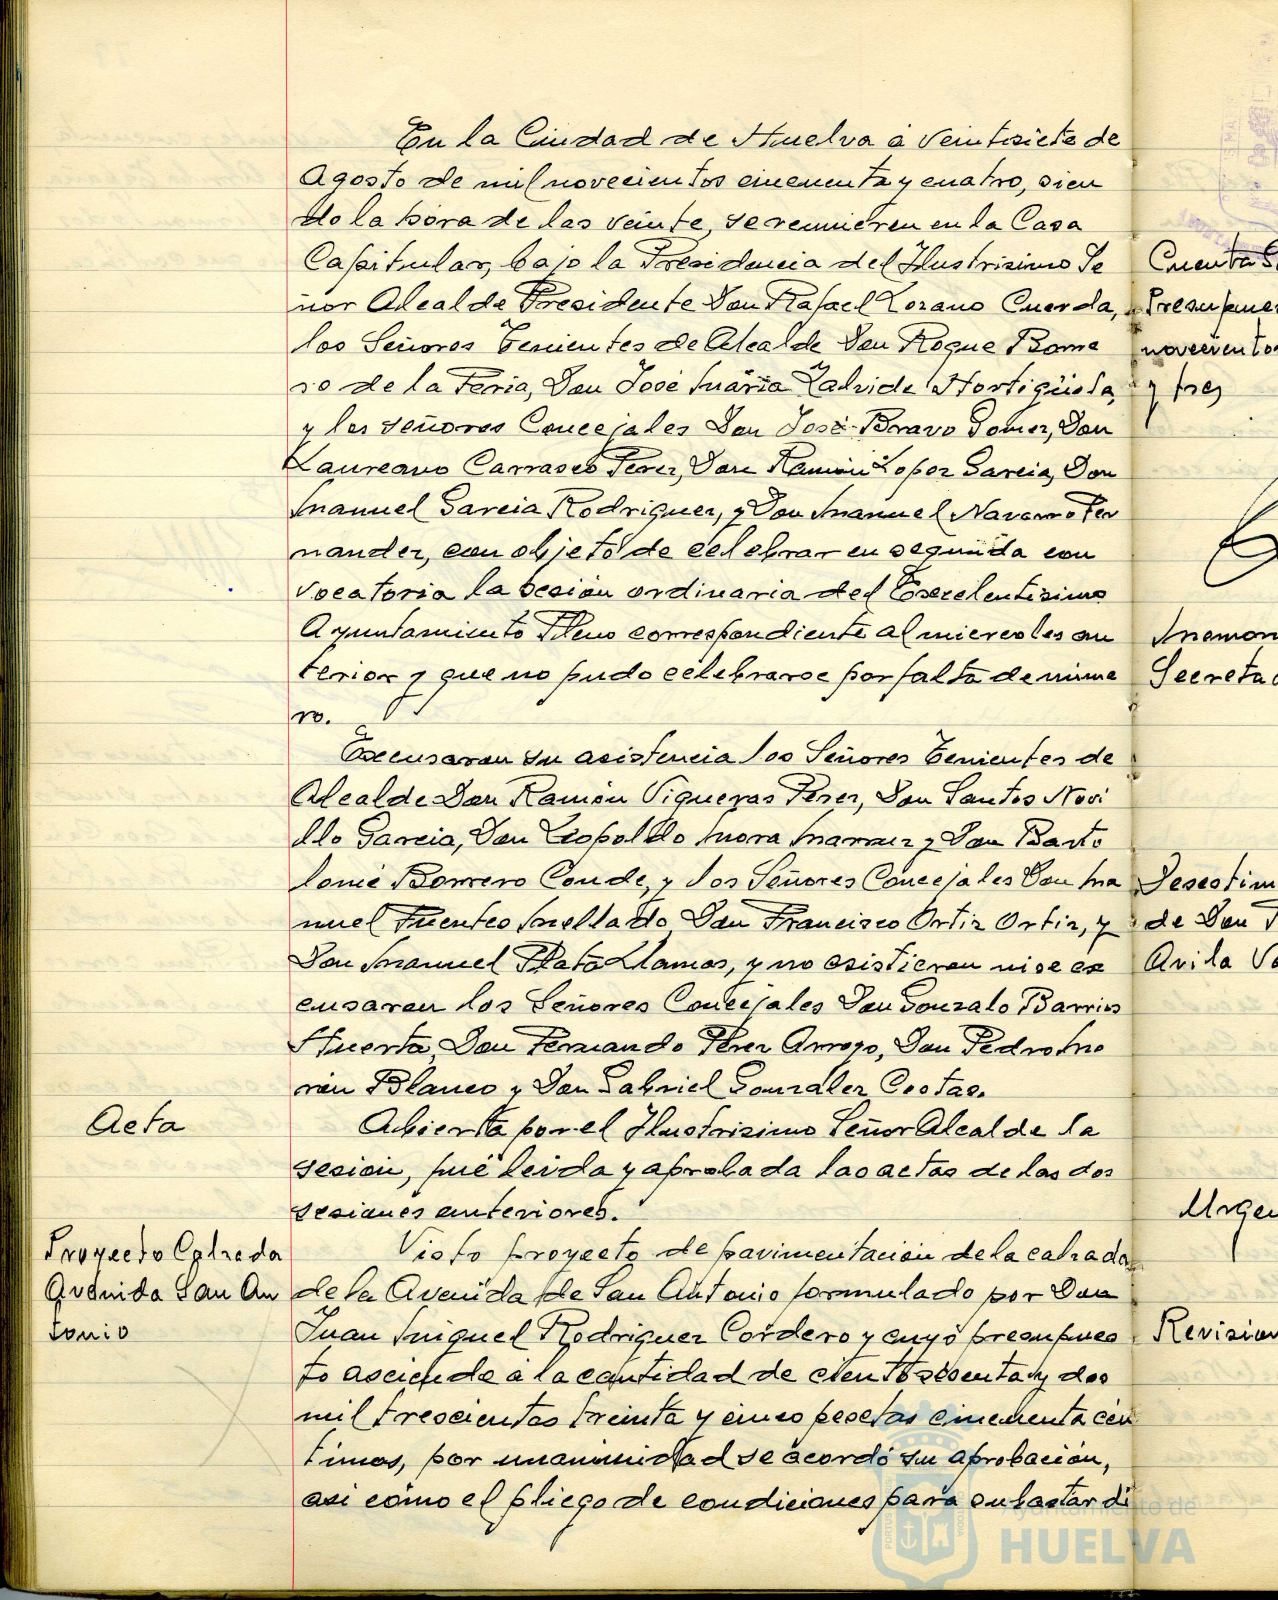 En la Ciudad de Huelva a veintisiete de
Agosto de mil novecientos cincuenta y cuatro, sien
do la hora de las veinte, se reunieron en la Casa
Capitular, bajo la Presidencia del Ilustrisimo Se
ñor Alcalde Presidente Don Rafael Lozano Cuerda,
los Señores Tenientes de Alcalde Don Roque Borre
ro de la Feria, Don José María Zalvide Hortigüela,
y los señores Concejales Don José Bravo Gomez, Don
Laureano Carrasco Perez, Don Ramón Lopez Garcia, Don
Manuel Garcia Rodriguez, y Don Manuel Navarro Fer
nandez, con objeto de celebrar en segunda con
vocatoria la sesión ordinaria del Excelentisimo
Ayuntamiento Pleno correspondiente al miercoles an
terior y que no pudo celebrarse por falta de núme
ro.
Excusaron su asistencia los Señores Tenientes de
Alcalde Don Ramón Vigueras Perez, Don Santos Novi
llo Garcia, Don Leopoldo Mora y Don Barto
lomé Borrero Conde, y los Señores Concejales Don Ma
nuel Fuentes Mellado, Don Francisco Ortiz Ortiz, y
Don Manuel Plata Llamas, y no asistieron ni se ex
cusaron los Señores Concejales Don Gonzalo Barrios
Huerta, Don Fernando Pérez Arroyo, Don Pedro Mo
rón Blanco y Don Gabriel Gonzalez Costas.
Acta
Abierta por el Ilustrisimo Señor Alcalde la
sesión, fué leida y aprobada las actas de las dos
sesiones anteriores.
Proyecto Calzada
Avenida San An
tonio
Visto proyecto de pavimentación de la calzada
de la Avenida de San Antonio formulado por Don
Juan Miguel Rodriguez Cordero y cuyo presupues
to asciende a la cantidad de ciento sesenta y dos
mil trescientas treinta y cinco pesetas cincuenta cén
timos, por unanimidad se acordó su aprobación,
asi como el pliego de condiciones para subastar di
Cuenta
Presupue
novecientos
y tres
Secreta
Desestim
de Don
Avila
Urgen
Revision
Ayuntamiento de
HUELVA